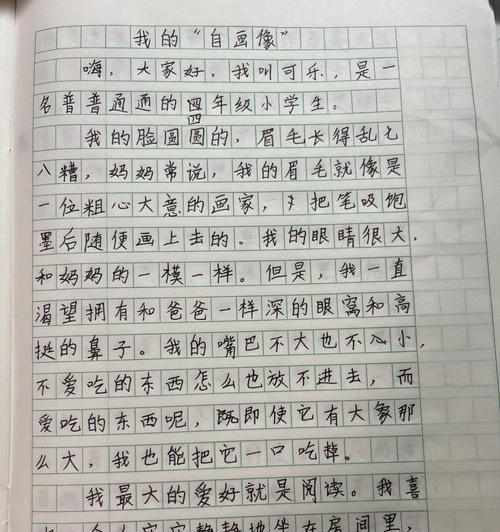 我的“自画像”
嗨，大家好，我叫可乐，是一
名普普通通的四年级小学生。
我的脸圆圆的，眉毛长得乱七
八糟，妈妈常说，我的眉毛就像是
一位粗心大意的画家，把笔吸饱
墨后随便画上去的。我的眼睛很大，
和妈妈的一模一样。但是，我一直
渴望拥有和爸爸一样深的眼窝和高
挺的鼻子。我的嘴巴不大也不小，
不爱吃的东西怎么也放不进去，而
爱吃的东西呢，即使它有大象那
么大，我也能把它一口吃掉。
我最大的爱好就是阅读。我喜
个人安安静静地坐在房间里，